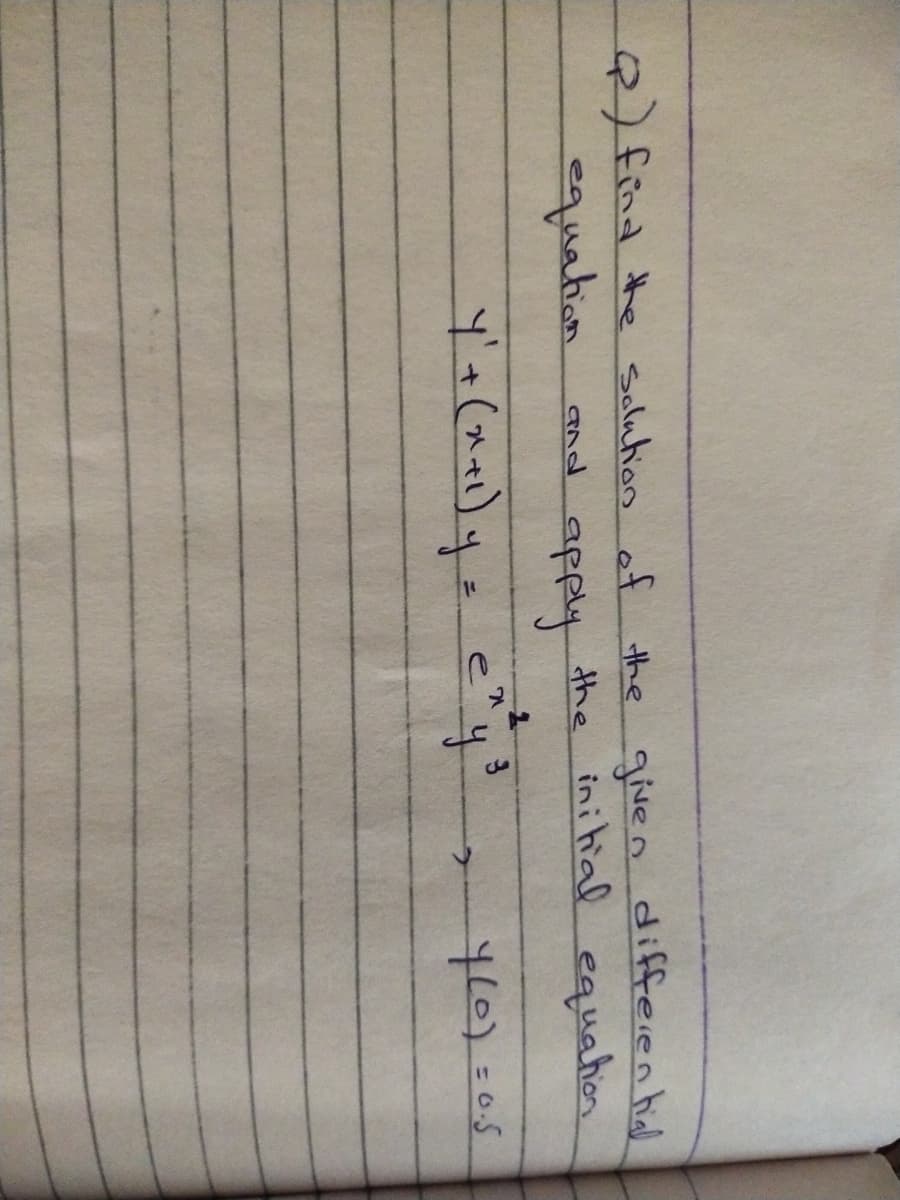 Q) find the solution of the given differential
equation and apply the initial equation
y' + (x+1) y = e^{x^2} y^3 , y(0) = 0.5